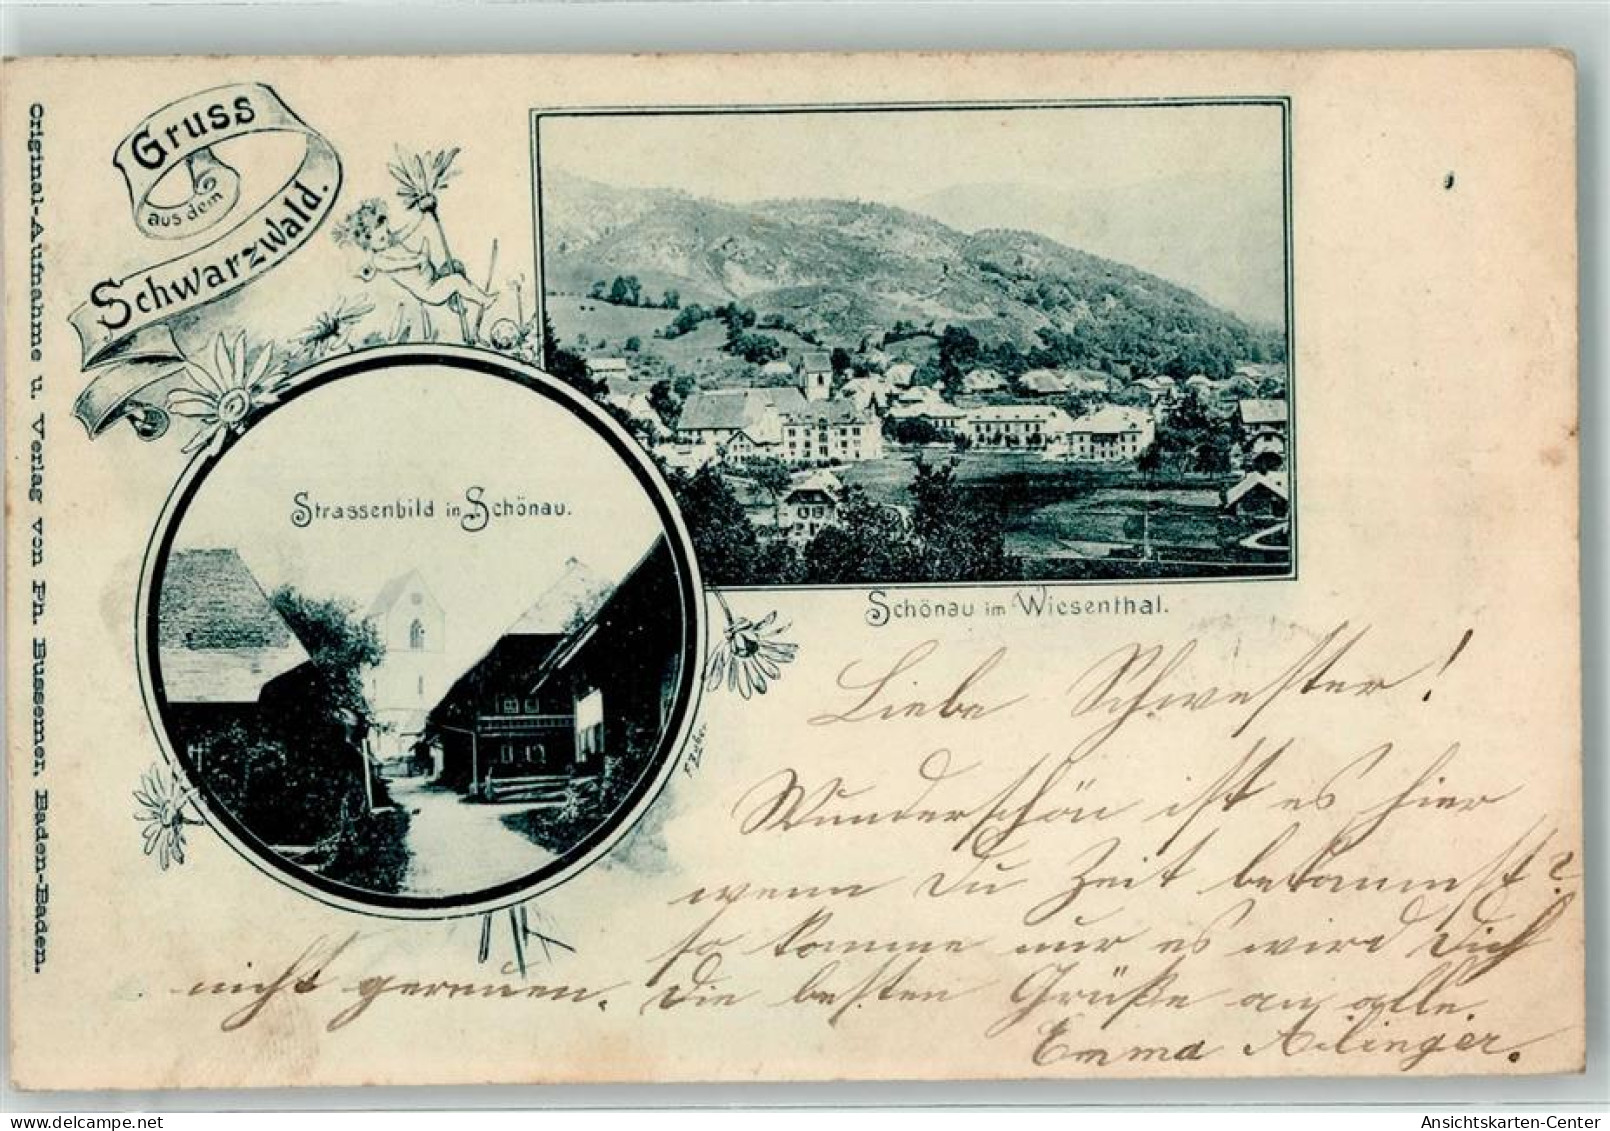 Gruss
aus dem
Schwarzwald.
Original-Aufnahme u. Verlag von Ph. Bussemer, Baden-Baden.
Strassenbild in Schönau.
Schönau im Wiesenthal.
Liebe Schwester!
Wunderschön ist es hier
wenn Du Zeit bekommst?
so komme nur es wird Dich
nicht gereuen. Die besten Grüße an alle.
Emma Ailinger.
Ansichtskarten-Center